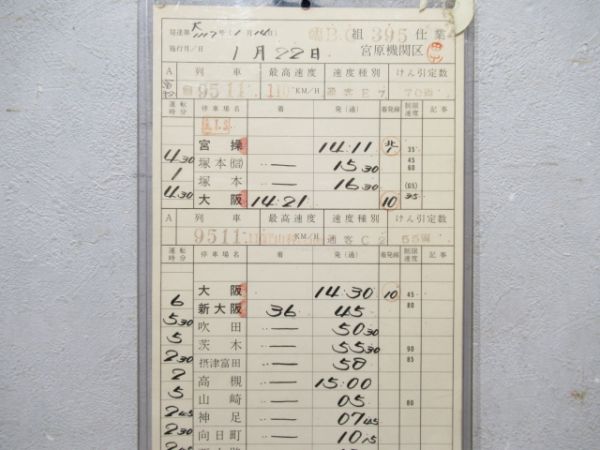 B.C 組 395 仕業
施行月/日 1月22日 宮原機関区
A 列車 最高速度 速度種別 けん引定数
9511 110 KM/H 通客
運転時分 停車場名 着 発(通) 着発線 制限速度 記事
宮操 14.11 35
4 30 塚本(信) — 15 30 45 60
1 塚本 — 16 30 (65)
4 30 大阪 14.21 10 35
A 列車 最高速度 速度種別 けん引定数
9511 110 KM/H 通客C2 55
運転時分 停車場名 着 発(通) 着発線 制限速度 記事
大阪 14.30 10 45
6 新大阪 36 45 80
5 30 吹田 — 50 30
5 茨木 — 55 30 90
2 30 摂津富田 — 58 85
2 高槻 — 15.00
5 山崎 — 05 80
2 45 神足 — 07 45
2 30 向日町 — 10 15
2 45